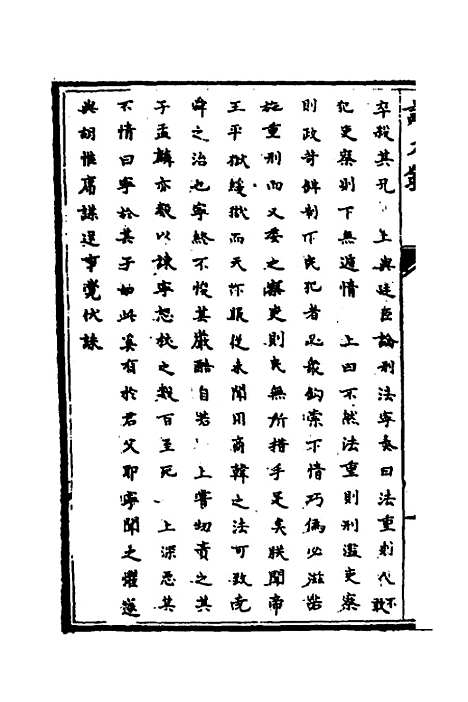 卒殺其孔 上與廷臣論刑法寧奏曰法重則人不敢
犯吏察則下無遁情 上曰不然法重則刑濫吏察
則政苛鉗制下民犯者必衆鈎索下情巧偽必滋
施重刑而又委之察吏則民無所措手足矣朕聞帝
王平獄緩獄而天下服從未聞用商韓之法可致堯
舜之治也寧終不悛其嚴酷自若 上嘗切責之其
子孟麟亦數以諫寧怒捶之數百至死 上深惡其
不情曰寧於其子如此奚有於君父耶寧聞之懼遂
與胡惟庸謀逆事覺伏誅